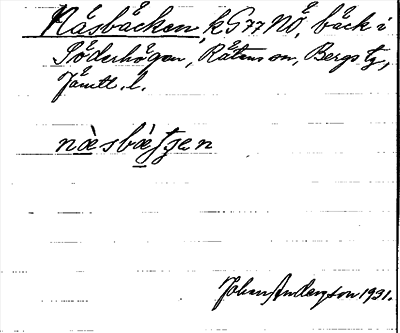 Nåsbäcken, k G 77 NÖ, bäck i
Söderhögen, Rätans sn, Bergs tg,
Jämtl. l.
Johan Anderson 1931.